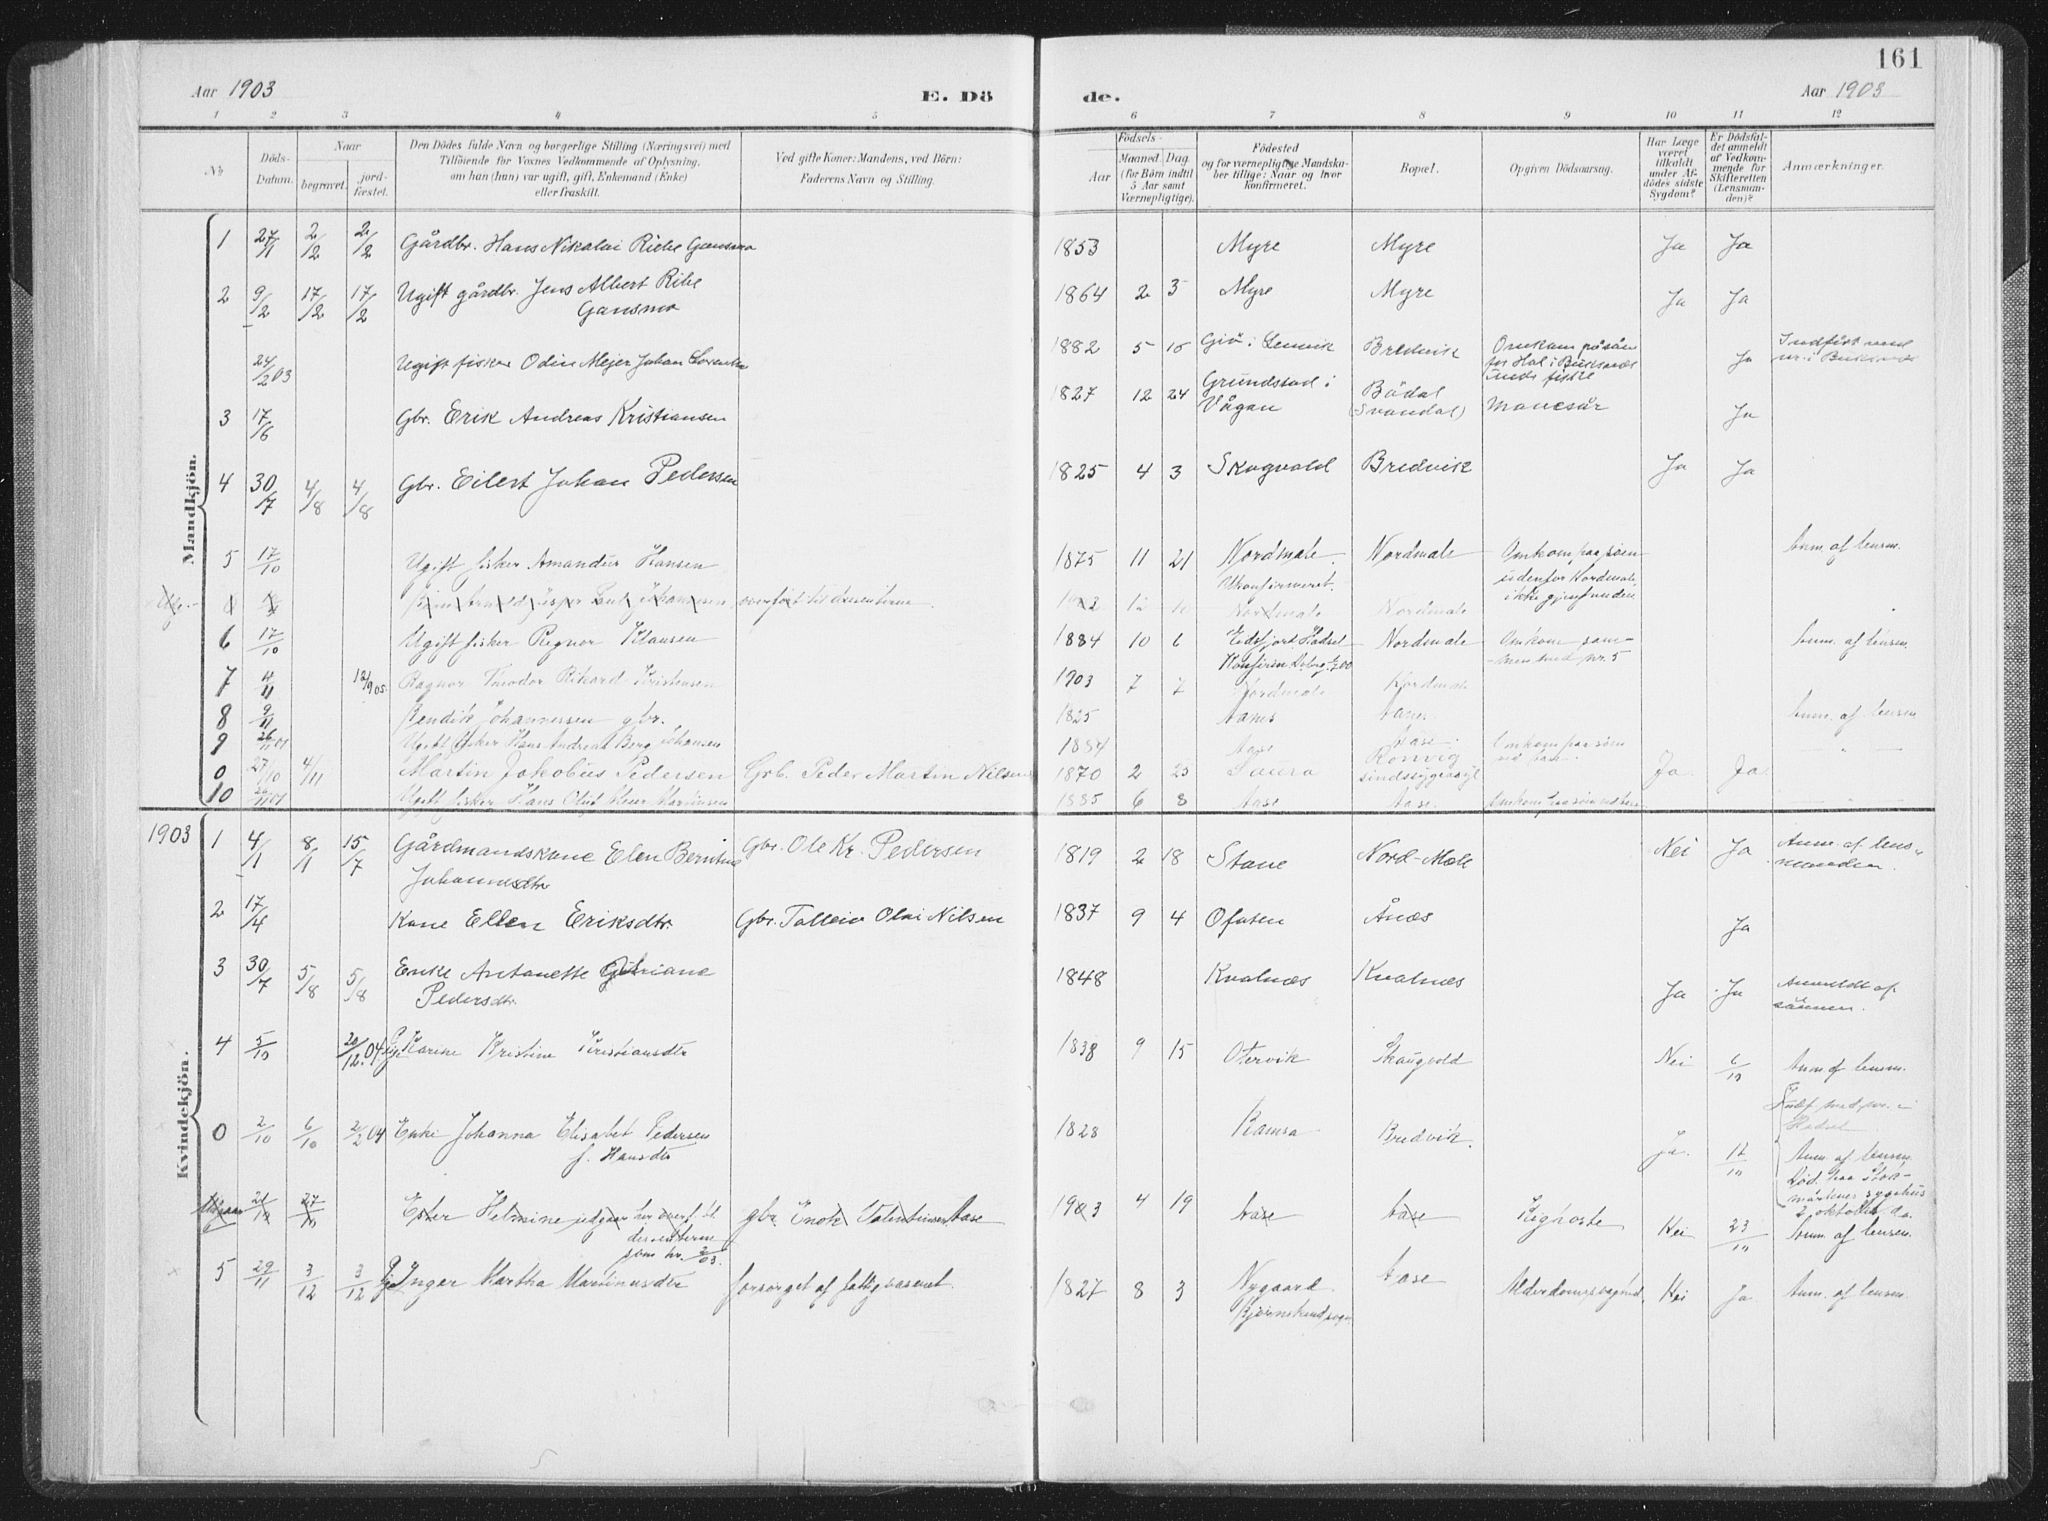 161
Aar 1903
E. Dö
de.
Aar 1903
1 2 3 4 5 6 7 8 9 10 11 12
No
Döds-Datum.
Naar
begravet.
jord-fæstet.
Den Dödes fulde Navn og borgerlige Stilling (Næringsvei) med
Tilföiende for Voxnes Vedkommende af Oplysning,
om han (hun) var ugift, gift, Enkemand (Enke)
eller fraskilt.
Ved gifte Koner: Mandens, ved Börn:
Faderens Navn og Stilling.
Födsels-
Aar
Maaned Dag
(for Börn indtil
5 Aar samt
Værnepligtige).
Födested
og for værnepligtige Mandska-
ber tillige: Naar og hvor
konfirmeret.
Bopæl.
Opgiven Dödsaarsag.
Har Læge
været
tilkaldt
under Af-
dödes sidste
Sygdom?
Er Dödsfal-
det anmeldt
af Vedkom-
mende for
Skifteretten
(Lensman-
den)?
Anmærkninger.
Mandkjön.
1 27/1 2/2 2/2 Gårdbr. Hans Nikolai Riebe Gansmo 1853 Myre Myre Ja Ja
2 9/2 17/2 17/2 Ugift gårdbr. Jens Albert Ribe 1864 2 3 Myre Myre Ja Ja
Gansmo
24/2 03 Ugift fisker Odin Mejer Johan 1882 5 Bredvik Omkom på Ja Indført
1827 12 24 Grundstad i Bödal
3 17/6 Gbr. Erik Andreas Kristiansen Vågan (Svandal) Mavesår Ja
4 30/7 4/8 4/8 Gbr. Eilert Johan Pedersen 1825 4 3 Skogvold Bredvik Ja Ja
5 17/10 Ugift fisker Amandus Hansen 1875 11 21 Nordmæle Nordmæle Omkom paa søen Anm. af lensm.
Ukonfirmeret. udenfor Nordmæle,
ikke gjenfunden
Johansen overført til dissenterne Nordmæle Nordmæle
6 17/10 Ugift fisker Ragnor Klausen 1884 10 6 Eidsfjord Hadsel Nordmæle Omkom sam- Anm. af lensm.
men med nr. 5
7 4/11 12/9 05. Ragnor Teodor Rikard Kristensen 1903 7 7 Nordmæle Nordmæle
8 9/11 Bendik Johannessen gbr. 1825 Aanes Aanes Anm. af lensm
9 26/11 01 Ugift fisker Hans Andreas Berg Johansen 1884 Aase Aase Omkom paa søen
0 27/10 4/11 Martin Jakobus Pedersen Grb. Peder Martin Nilsen 1870 2 23 Saura Ronvig sindssygeasyl Ja Ja
10 26/11 01 Ugift fisker Hans Oluf Martinsen 1885 6 8 Aase Aase. Omkom paa søen
Kvindekjön.
1903 1 4/1 8/1 15/7 Gårdmandskone Elen Berntine Gbr. Ole Kr. Pedersen 1819 2 18 Stave Nord-Mæle Nei Ja Anm. af lens-
Johannesdtr manden.
2 17/4 Kone Ellen Eriksdtr. Gbr. Tolleiv Olai Nilsen 1837 9 4 Ofoten Ånæs Ja
3 30/7 5/8 5/8 Enke Antonette Juliane 1848 Kvalnæs Kvalnæs Ja Ja Anmeldt af
Pedersdtr. sønnen.
4 5/10 20/12.04 Pige Karine Kristine Kristiansdtr 1838 9 15 Otervik Skaugvold Nei 6/10 Anm. af lensm.
Indf. med nr. i
Hadsel
0 2/10 6/10 2/2 04 Enke Johanna Elisabet Pedersen 1828 Ramsa Bredvik. Ja. 12/10 Anm. af lensm.
f. Hansdtr Død paa Stok-
marknes sygehus
2 oktober
Udgaar 21/10 27/10 Ester Helmine udgaar her overf. til gbr. Enok Valentinsen Aase 1903 4 19 Aase Aase Kighoste Nei 23/10 Anm. af lensm.
dissenterne
som nr. 2/03.
5 29/11 3/12 3/12 Pige Inger Martha Martinusdtr forsørget af fattigvæsenet. 1827 8 3 Nygaard Aase Alderdomssvaghed. Nei Ja Anm. af lensm.
Bjørnskind sogn